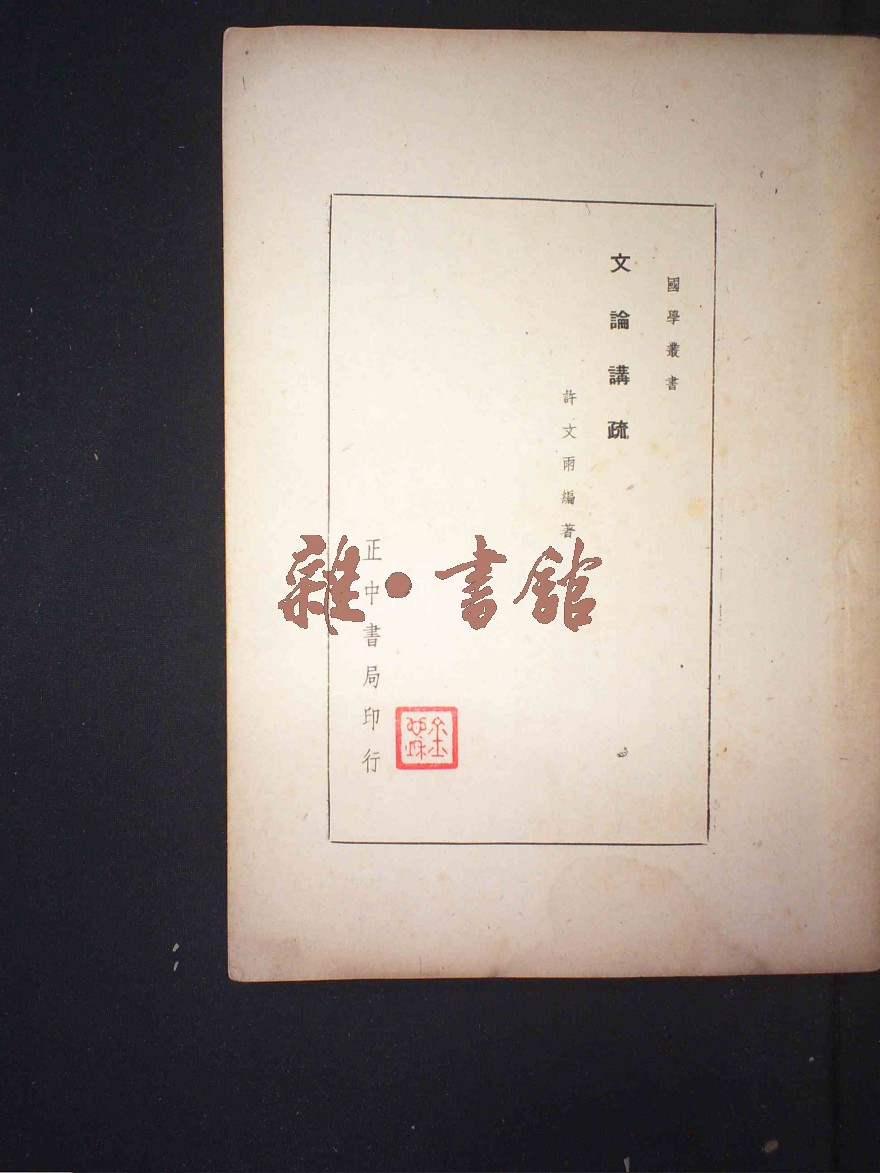 國學叢書
文論講疏
許文雨編著
正中書局印行
雜·書館